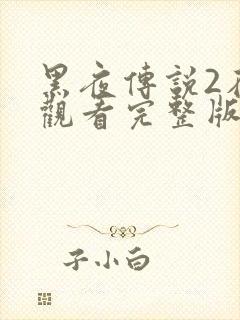 黑夜傳説2
觀看完整版
子小白